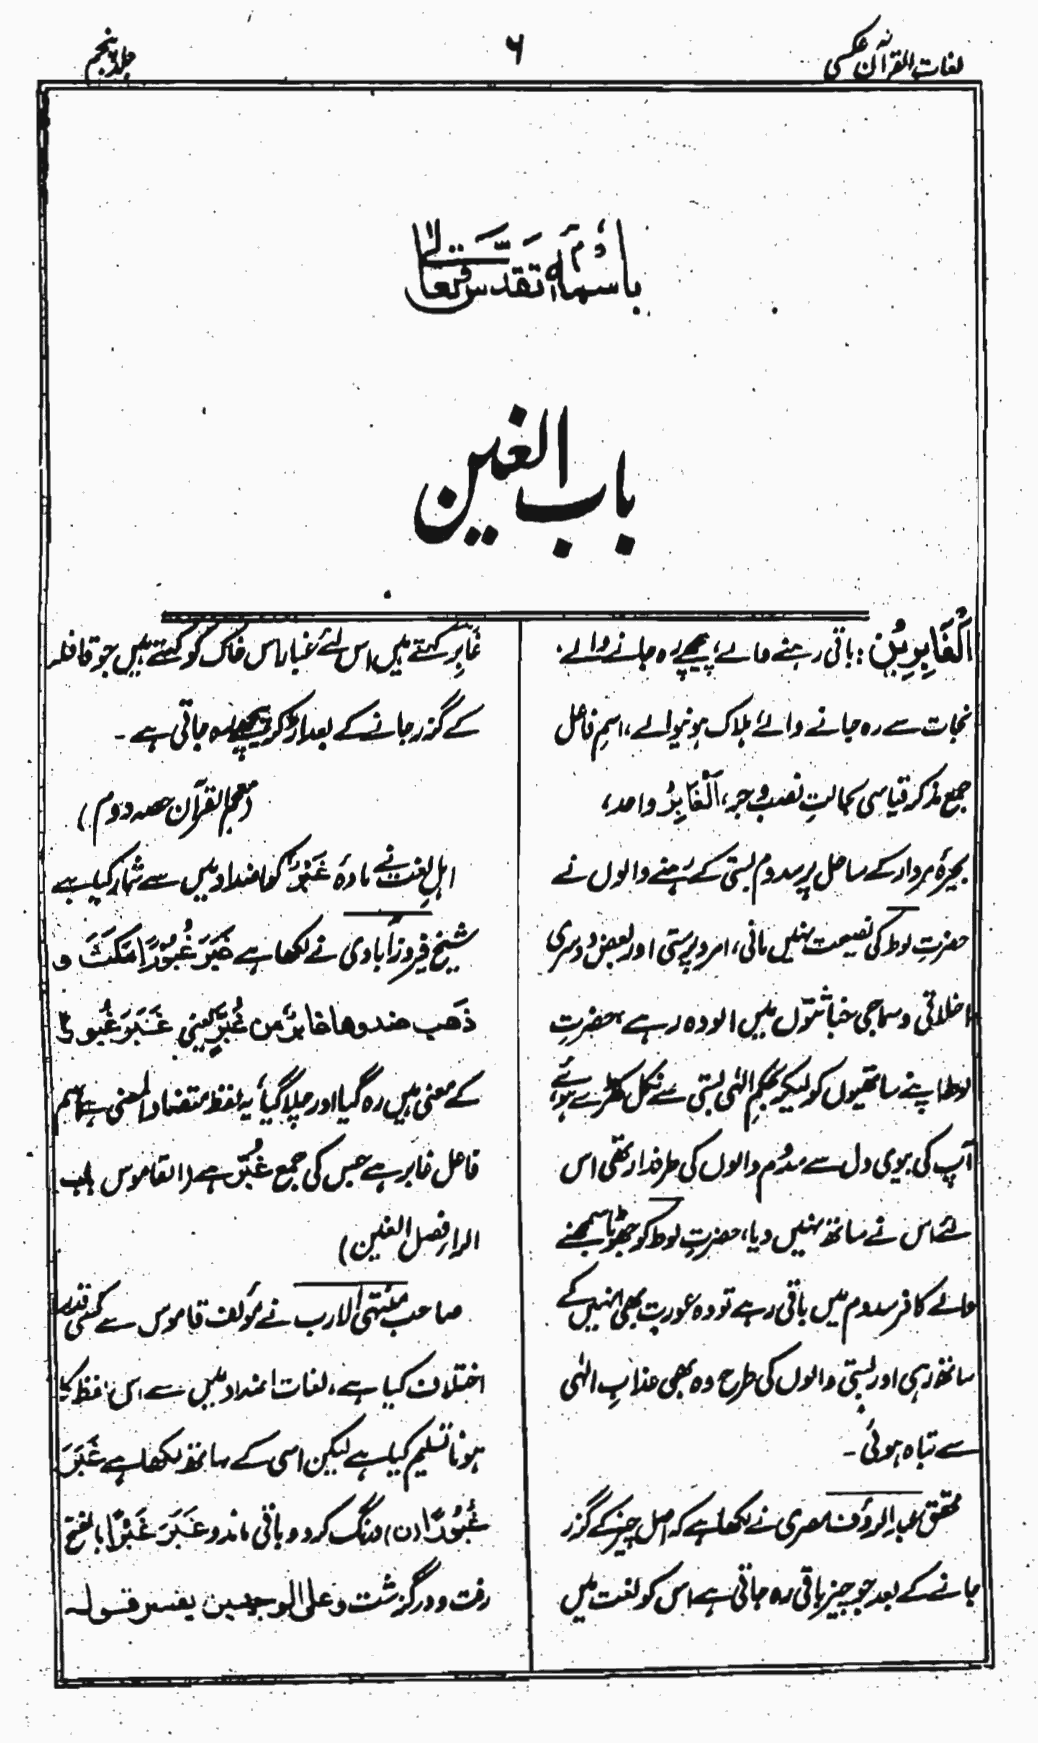 لغات القرآن عکسی
۶
جلد پنجم
باسمہٖ تقدس و تعالیٰ
باب الغین
اَلْغَابِرِیْنَ: باقی رہنے والے، پیچھے رہ جانے والے،
نجات سے رہ جانے والے، ہلاک ہونیوالے، اسمِ فاعل
جمع مذکر قیاسی بحالتِ نصب و جر، اَلْغَابِرُ واحد،
بحیرۂ مردار کے ساحل پر سدوم بستی کے رہنے والوں نے
حضرتِ لوط کی نصیحت نہیں مانی، امرد پرستی اور بعض دوسری
اخلاقی و سماجی خباثتوں میں آلودہ رہے، حضرتِ
لوط اپنے ساتھیوں کو لیکر بحکمِ الٰہی بستی سے نکل کھڑے ہوئے،
آپ کی بیوی دل سے سدوم والوں کی طرفدار تھی اس
لئے اس نے ساتھ نہیں دیا، حضرتِ لوط کو جھوٹا سمجھنے
والے کافر سدوم میں باقی رہے تو وہ عورت بھی انہیں کے
ساتھ رہی اور بستی والوں کی طرح وہ بھی عذابِ الٰہی
سے تباہ ہوئی۔
محقق عبد الرؤف مصری نے لکھا ہے کہ اصل چیز کے گزر
جانے کے بعد جو چیز باقی رہ جاتی ہے اس کو لغت میں
غابِر کہتے ہیں، اس لئے غبار اس خاک کو کہتے ہیں جو قافلہ
کے گزر جانے کے بعد اڑ کر پیچھے رہ جاتی ہے۔
(معجم القرآن حصہ دوم)
اہلِ لغت نے مادۂ غَبَرَ کو اضداد میں سے شمار کیا ہے
شیخ فیروز آبادی نے لکھا ہے غَبَرَ غُبُوْرًا مَکَثَ و
ذَھَب ضد وھا غابرٌ من غُبَّرٍ یعنی غَبَرَ غُبُور
کے معنی ہیں رہ گیا اور چلا گیا، یہ لفظ متضاد المعنی ہے اسم
فاعل غابر ہے جس کی جمع غُبَّر ہے (القاموس باب
الرا، فصل الغین)
صاحب منتہی الارب نے مؤلف قاموس سے کسی قدر
اختلاف کیا ہے، لغات اضداد میں سے اس لفظ کا
ہونا تسلیم کیا ہے لیکن اسی کے ساتھ لکھا ہے غَبَرَ
غُبُوْرًا (ن) درنگ کرد و باقی ماند و غَبَرَ غَبْرًا بالفتح
رفت و درگزشت و علی الوجھین یفسر قولہ